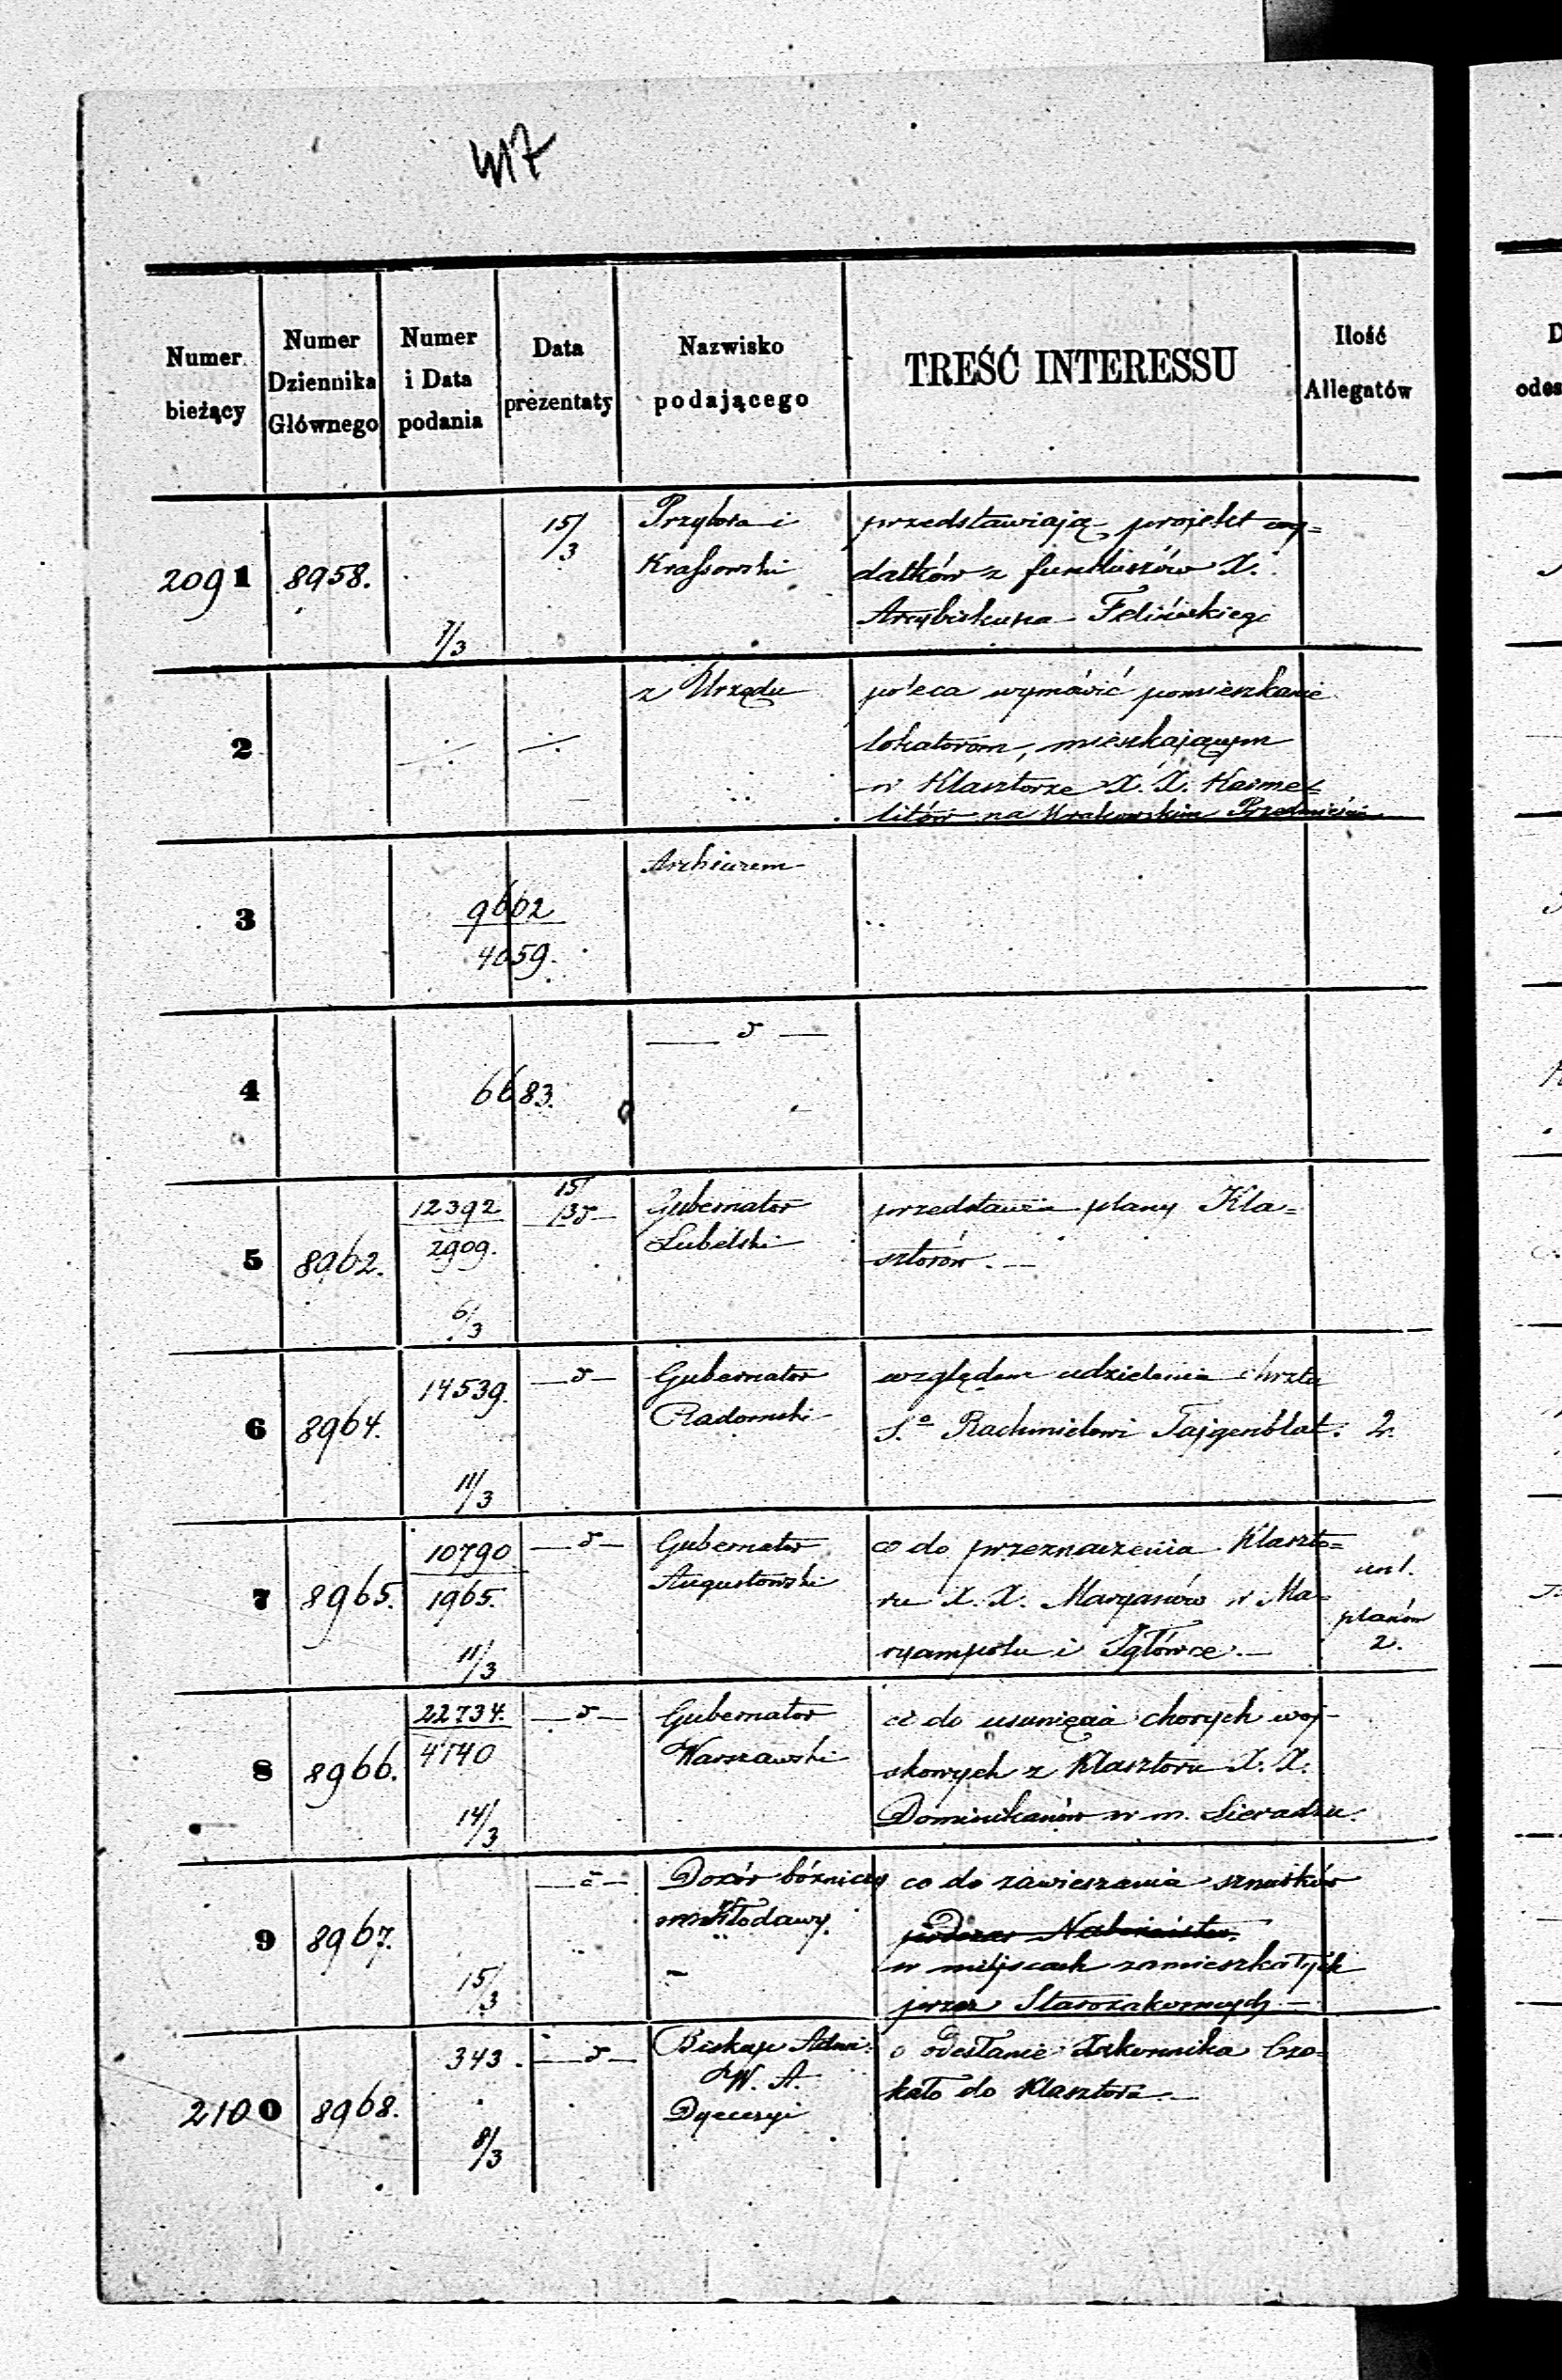 417
Numer bieżący
Numer Dziennika Głównego
Numer i Data podania
Data prezentaty
Nazwisko podającego
TREŚĆ INTERESSU
Ilość Allegatów
2091 8958. 7/3 15/3
Przybora i
Krassowski
przedstawiają projekt wy=
datków z funduszów X.
Arcybiskupa Felińskiego
2
z Urzędu
poleca wymówić pomieszkanie
lokatorom, mieszkającym
w Klasztorze X. X. Karme=
litów na Krakowskim Przedmieściu
3
9662
4059.
Archiwum
4
6683.
— d —
5 8962.
12392
2909.
6/3
15/3 d —
Gubernator
Lubelski
przedstawia plany Kla=
sztorów. —
6 8964.
14539.
11/3
— d —
Gubernator
Radomski
względem udzielenia chrztu
S.º Rachmielowi Fajgenblat. 2.
7 8965.
10790
1965.
11/3
— d —
Gubernator
Augustowski
co do przeznaczenia Klaszto=
ru X. X. Maryanów w Ma=
ryampolu i Igłówce. —
planów
2.
8 8966.
22734.
4740
14/3
— d —
Gubernator
Warszawski
co do usunięcia chorych woj-
skowych z Klasztoru X. X.
Dominikanów w m. Sieradzu.
9 8967.
15/3
— d —
Dozór bóżniczy
Kłodawy.
co do zawieszania sznurków
podczas Nabożeństw.
w miejscach zamieszkałych
przez Starozakonnych —
2100 8968.
343.
8/3
— d —
Biskup Adm:
W. A.
Dyecezyi
o odesłanie Zakonnika Czo=
kało do Klasztoru. —
D
odes